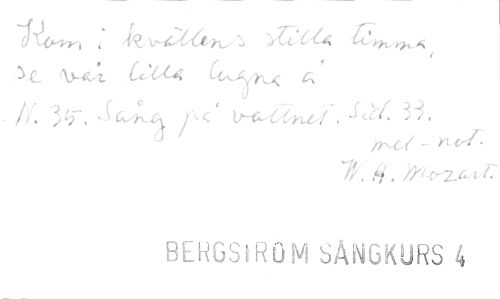 Kom i kvällens stilla timma,
se vår lilla lugna å
N. 35. Sång på vattnet. Sid. 33.
mel-not.
W. A. Mozart.
BERGSTRÖM SÅNGKURS 4